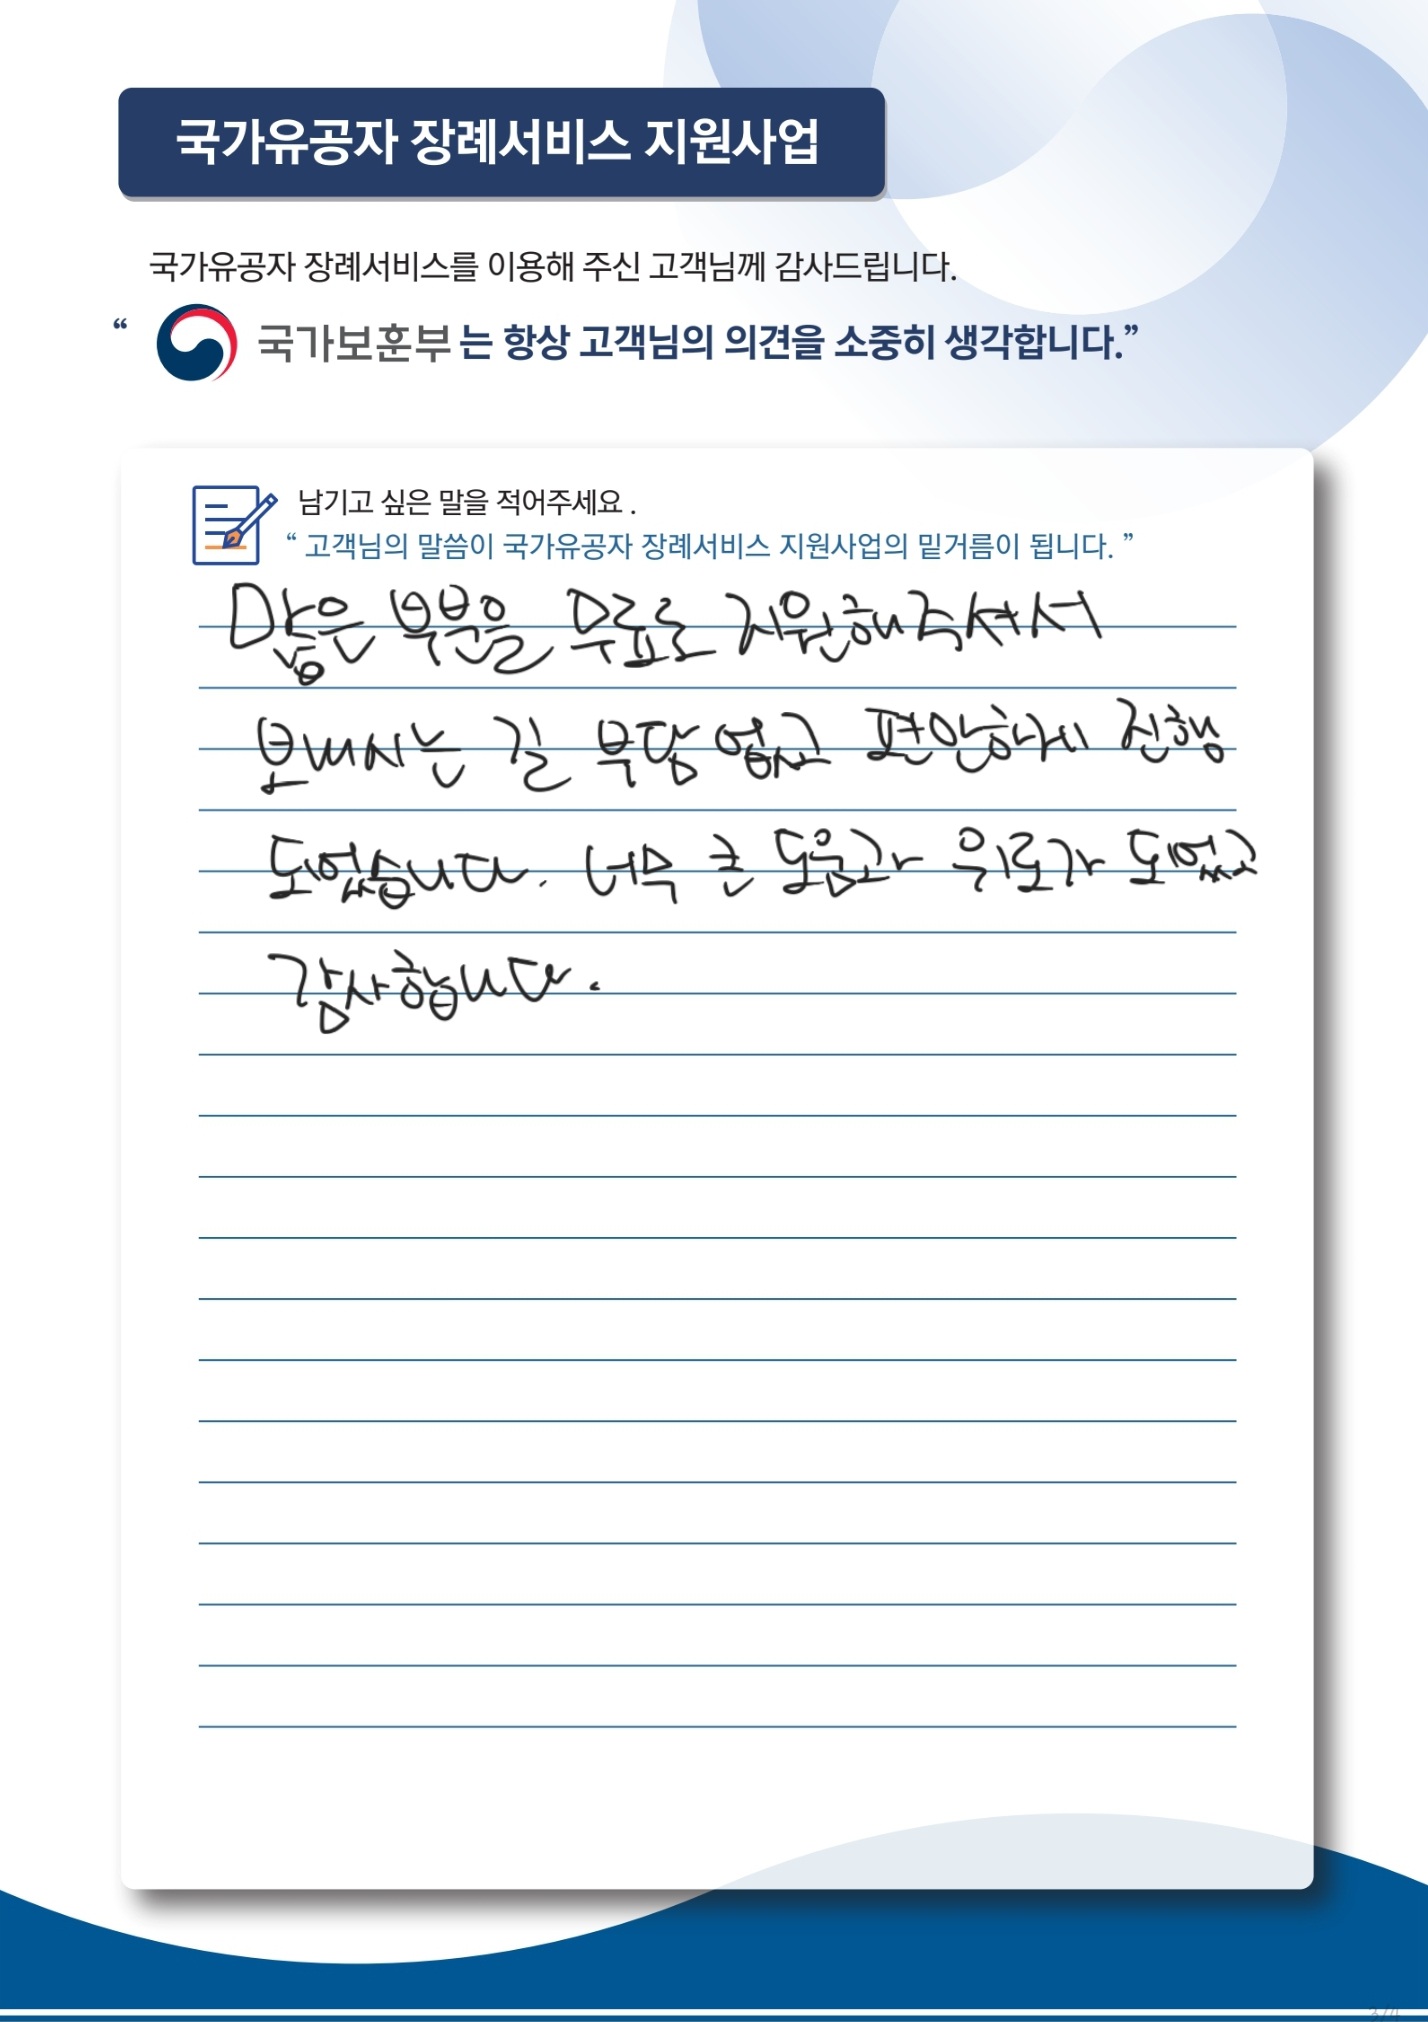 국가유공자 장례서비스 지원사업
국가유공자 장례서비스를 이용해 주신 고객님께 감사드립니다.
“ 국가보훈부 는 항상 고객님의 의견을 소중히 생각합니다.”
남기고 싶은 말을 적어주세요 .
“ 고객님의 말씀이 국가유공자 장례서비스 지원사업의 밑거름이 됩니다. ”
많은 부분을 무료로 지원해주셔서
보내시는 길 부담 없고 편안하게 진행
되었습니다. 너무 큰 도움과 위로가 되었고
감사합니다.
3/4